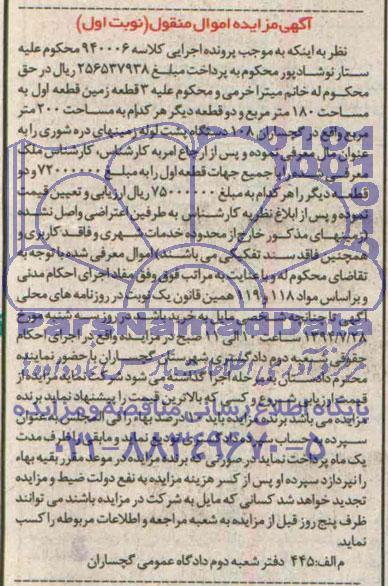 آگهی مزایده اموال منقول (نوبت اول)
نظر به اینکه به موجب پرونده اجرایی کلاسه ۹۴۰۰۰۶ محکوم علیه
ستار نوشادپور محکوم به پرداخت مبلغ ۲۵۶۵۳۷۹۳۸ ریال در حق
محکوم له خانم میترا خرمی و محکوم علیه ۳ قطعه زمین قطعه اول به
مساحت ۱۸۰ متر مربع و دو قطعه دیگر هر کدام به مساحت ۲۰۰ متر
مربع واقع در گچساران ۱۰۸ دستگاه پشت لوله زمینهای دره شوری را به
عنوان مال معرفی نموده و پس از ارجاع امر به کارشناس، کارشناس ملک
معرفی شده را با جمیع جهات قطعه اول را به مبلغ ۷۲۰۰۰۰۰۰ و دو
قطعه دیگر را هر کدام به مبلغ ۷۵۰۰۰۰۰۰ ریال ارزیابی و تعیین قیمت
نموده و پس از ابلاغ نظریه کارشناس به طرفین اعتراضی واصل نشده
(زمینهای مذکور خارج از محدوده خدمات شهری و فاقد کاربری و
همچنین فاقد سند تفکیکی می باشند) اموال معرفی شده با توجه به
تقاضای محکوم له و با عنایت به مراتب فوق وفق مفاد اجرای احکام مدنی
و براساس مواد ۱۱۸ و ۱۱۹ همین قانون یک نوبت در روزنامه های محلی
آگهی تا چنانچه شخصی مایل به خرید باشند در روز سه شنبه مورخ
۱۳۹۴/۷/۲۸ ساعت ۱۰ الی ۱۱ صبح در مزایده واقع در اجرای احکام
حقوقی شعبه دوم دادگستری شهرستان گچساران با حضور نماینده
محترم دادستان بمرحله اجرا گذاشته می شود شرکت نمایند مزایده از
قیمت ارزیابی شروع و کسی که بالاترین قیمت را پیشنهاد نماید برنده
مزایده می باشد برنده مزایده باید ۱۰ درصد بهاء را فی المجلس به عنوان
سپرده به حساب سپرده دادگستری تودیع نماید و مابقی را ظرف مدت
یک ماه پرداخت نماید در صورتی که برنده مزایده در موعد مقرر بقیه بهاء
را نپردازد سپرده او پس از کسر هزینه مزایده به نفع دولت ضبط و مزایده
تجدید خواهد شد کسانی که مایل به شرکت در مزایده باشند می توانند
ظرف پنج روز قبل از مزایده به شعبه مراجعه و اطلاعات مربوطه را کسب
نماید.
م الف: ۴۴۵ دفتر شعبه دوم دادگاه عمومی گچساران
ParsNamadData
پایگاه اطلاع رسانی مناقصه و مزایده
۰۲۱-۸۸۳۴۹۶۷۰-۵